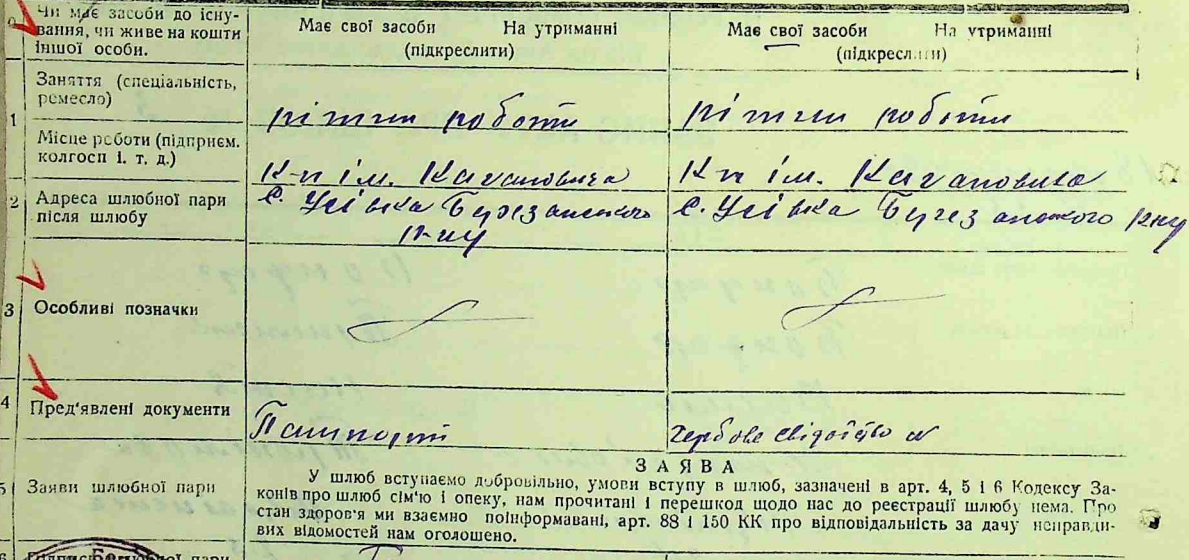 Чи має засоби до існу-
вання, чи живе на кошти
іншої особи.
Має свої засоби На утриманні
(підкреслити)
Має свої засоби На утриманні
(підкреслити)
1
Заняття (спеціальність,
ремесло)
різжи роботи
різжи роботи
Місце роботи (підприєм.
колгосп і. т. д.)
К-п ім. Кагановича
К-п ім. Кагановича
2
Адреса шлюбної пари
після шлюбу
с. Усівка Березанського
р-ну
с. Усівка Березанского р-ну
3
Особливі позначки
4
Пред'явлені документи
Пашпорт
Гербове свідотство
5
Заяви шлюбної пари
ЗАЯВА
У шлюб вступаємо добровільно, умови вступу в шлюб, зазначені в арт. 4, 5 і 6 Кодексу За-
конів про шлюб сім'ю і опеку, нам прочитані і перешкод щодо нас до реєстрації шлюбу нема. Про
стан здоров'я ми взаємно поінформавані, арт. 88 і 150 КК про відповідальність за дачу неправди-
вих відомостей нам оголошено.